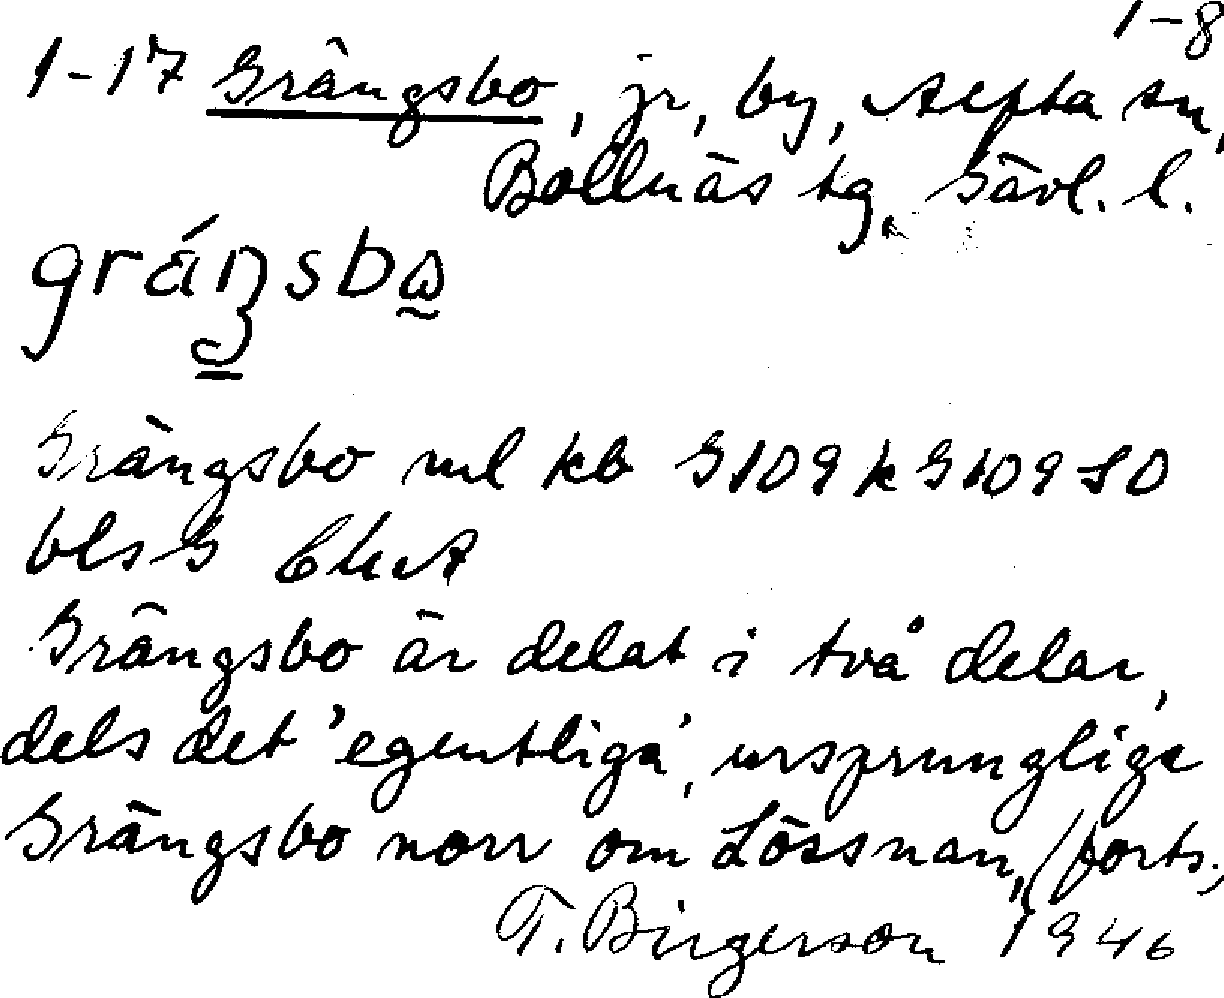 1-8
1-17 Grängsbo, jr, by, Alfta sn,
Bollnäs tg, Gävl. l.
gráŋsbɷ
Grängsbo ml kb G109 k G109 SO
bls G
Grängsbo är delat i två delar,
dels det 'egentliga', ursprungliga
Grängsbo norr om Lössnan, (forts.,
T. Birgerson 1946